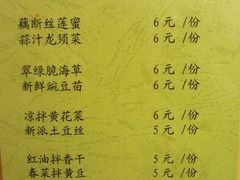 藕断丝莲蜜 6 元 /份
蒜汁龙须菜 6 元 /份
翠绿脆海草 6 元 /份
新鲜豌豆苗 6 元 /份
凉拌黄花菜 6 元 /份
新派土豆丝 5 元 /份
红油拌香干 5 元 /份
春菜拌黄豆 5 元 /份